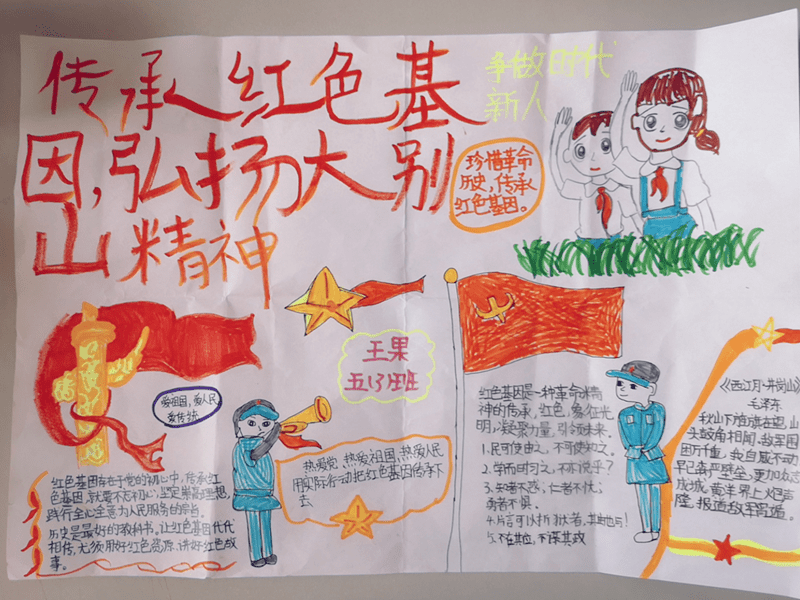 传承红色基
因,弘扬大别
山精神
争做时代
新人
珍惜革命
历史,传承
红色基因。
王果
五(3)班
爱祖国,爱人民
爱传统
热爱党、热爱祖国,热爱人民
用实际行动把红色基因传承下
去
红色基因存在于党的初心中,传承红
色基因,就要不忘初心,坚定崇高理想,
践行全心全意为人民服务的宗旨。
历史是最好的教科书,让红色基因代代
相传,尤须用好红色资源,讲好红色故
事。
红色基因是一种革命精
神的传承,红色,象征光
明,凝聚力量,引领未来。
1.民可使由之,不可使知之。
2.学而时习之,不亦说乎?
3.知者不惑,仁者不忧,
勇者不惧。
4.片言可以折狱者,其由也与!
5.不在其位,不谋其政
《西江月·井岗山》
毛泽东
秋山下旌旗在望,山
头鼓角相闻,敌军围
困万千重,我自岿不动
早已森严壁垒,更加众志
成城,黄洋界上火炮声
隆,报道敌军宵遁。